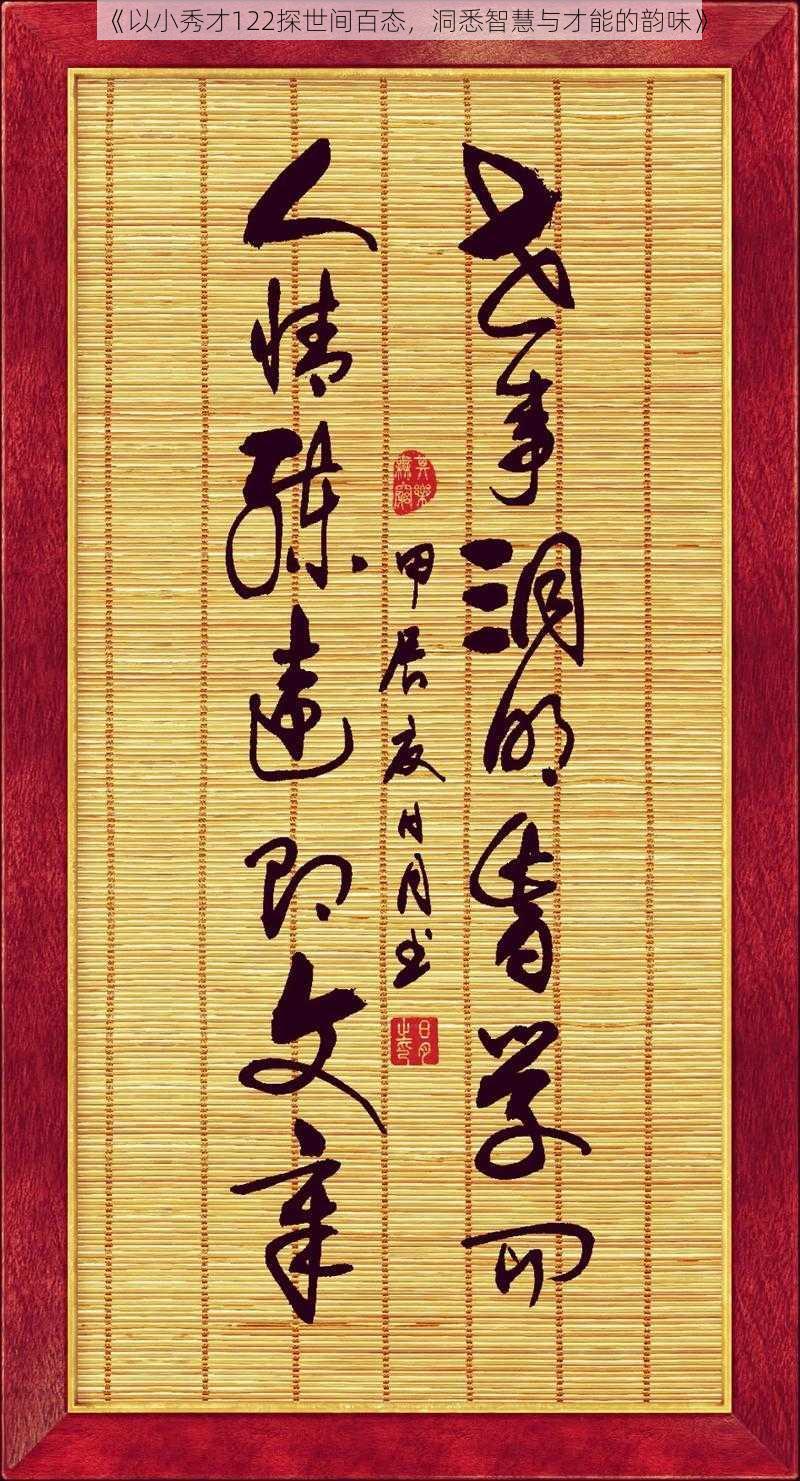 《以小秀才122探世间百态，洞悉智慧与才能的韵味》
世事洞明皆学问
人情练达即文章
甲辰夏日月书